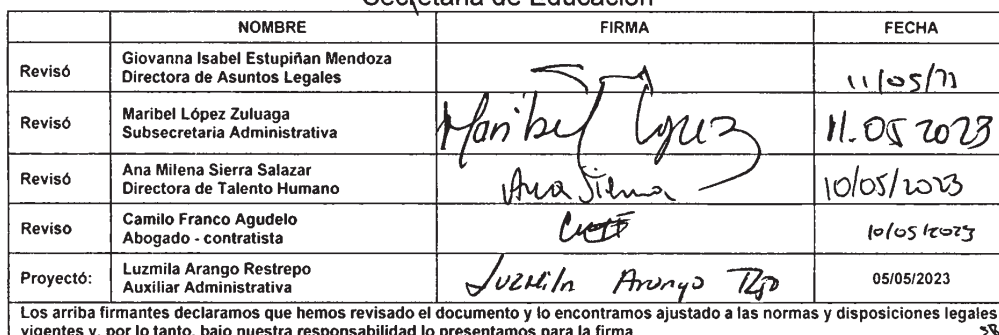 Secretaria de Educación
NOMBRE FIRMA FECHA
Revisó Giovanna Isabel Estupiñan Mendoza
Directora de Asuntos Legales 11/05/23
Revisó Maribel López Zuluaga
Subsecretaria Administrativa Maribel López 11.05 2023
Revisó Ana Milena Sierra Salazar
Directora de Talento Humano Ana Sierra 10/05/2023
Reviso Camilo Franco Agudelo
Abogado - contratista 10/05/2023
Proyectó: Luzmila Arango Restrepo
Auxiliar Administrativa Luzmila Arango Rpo 05/05/2023
Los arriba firmantes declaramos que hemos revisado el documento y lo encontramos ajustado a las normas y disposiciones legales
vigentes y, por lo tanto, bajo nuestra responsabilidad lo presentamos para la firma